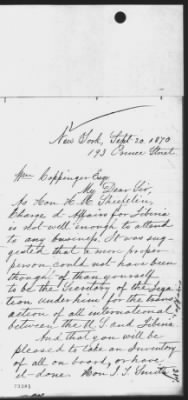 New York, Sept. 20, 1870
193 Prince Street.
Wm Coppinger Esqr
My Dear Sir,
As Hon H. M. Schieffelin,
Charge d Affairs for Liberia
is not well enough to attend
to any business. It was sug-
gested that a more proper
person could not have been
thought of than yourself
to be the Secretary of the Lega
tion under him for the trans
action of all international
between the U.S. and Liberia.
And that you will be
pleased to take an Inventory
of all on board, or have
it done. Hon J. Smith